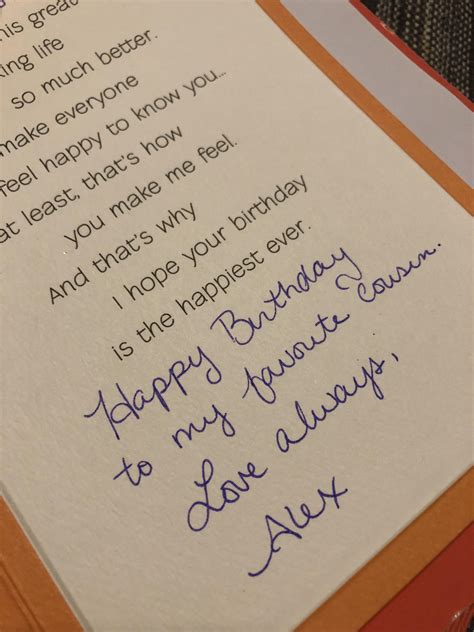 his great
life
so much better.
make everyone
feel happy to know you...
at least, that's how
you make me feel.
And that's why
I hope your birthday
is the happiest ever.
Happy Birthday
to my favorite cousin.
Love always,
Alex